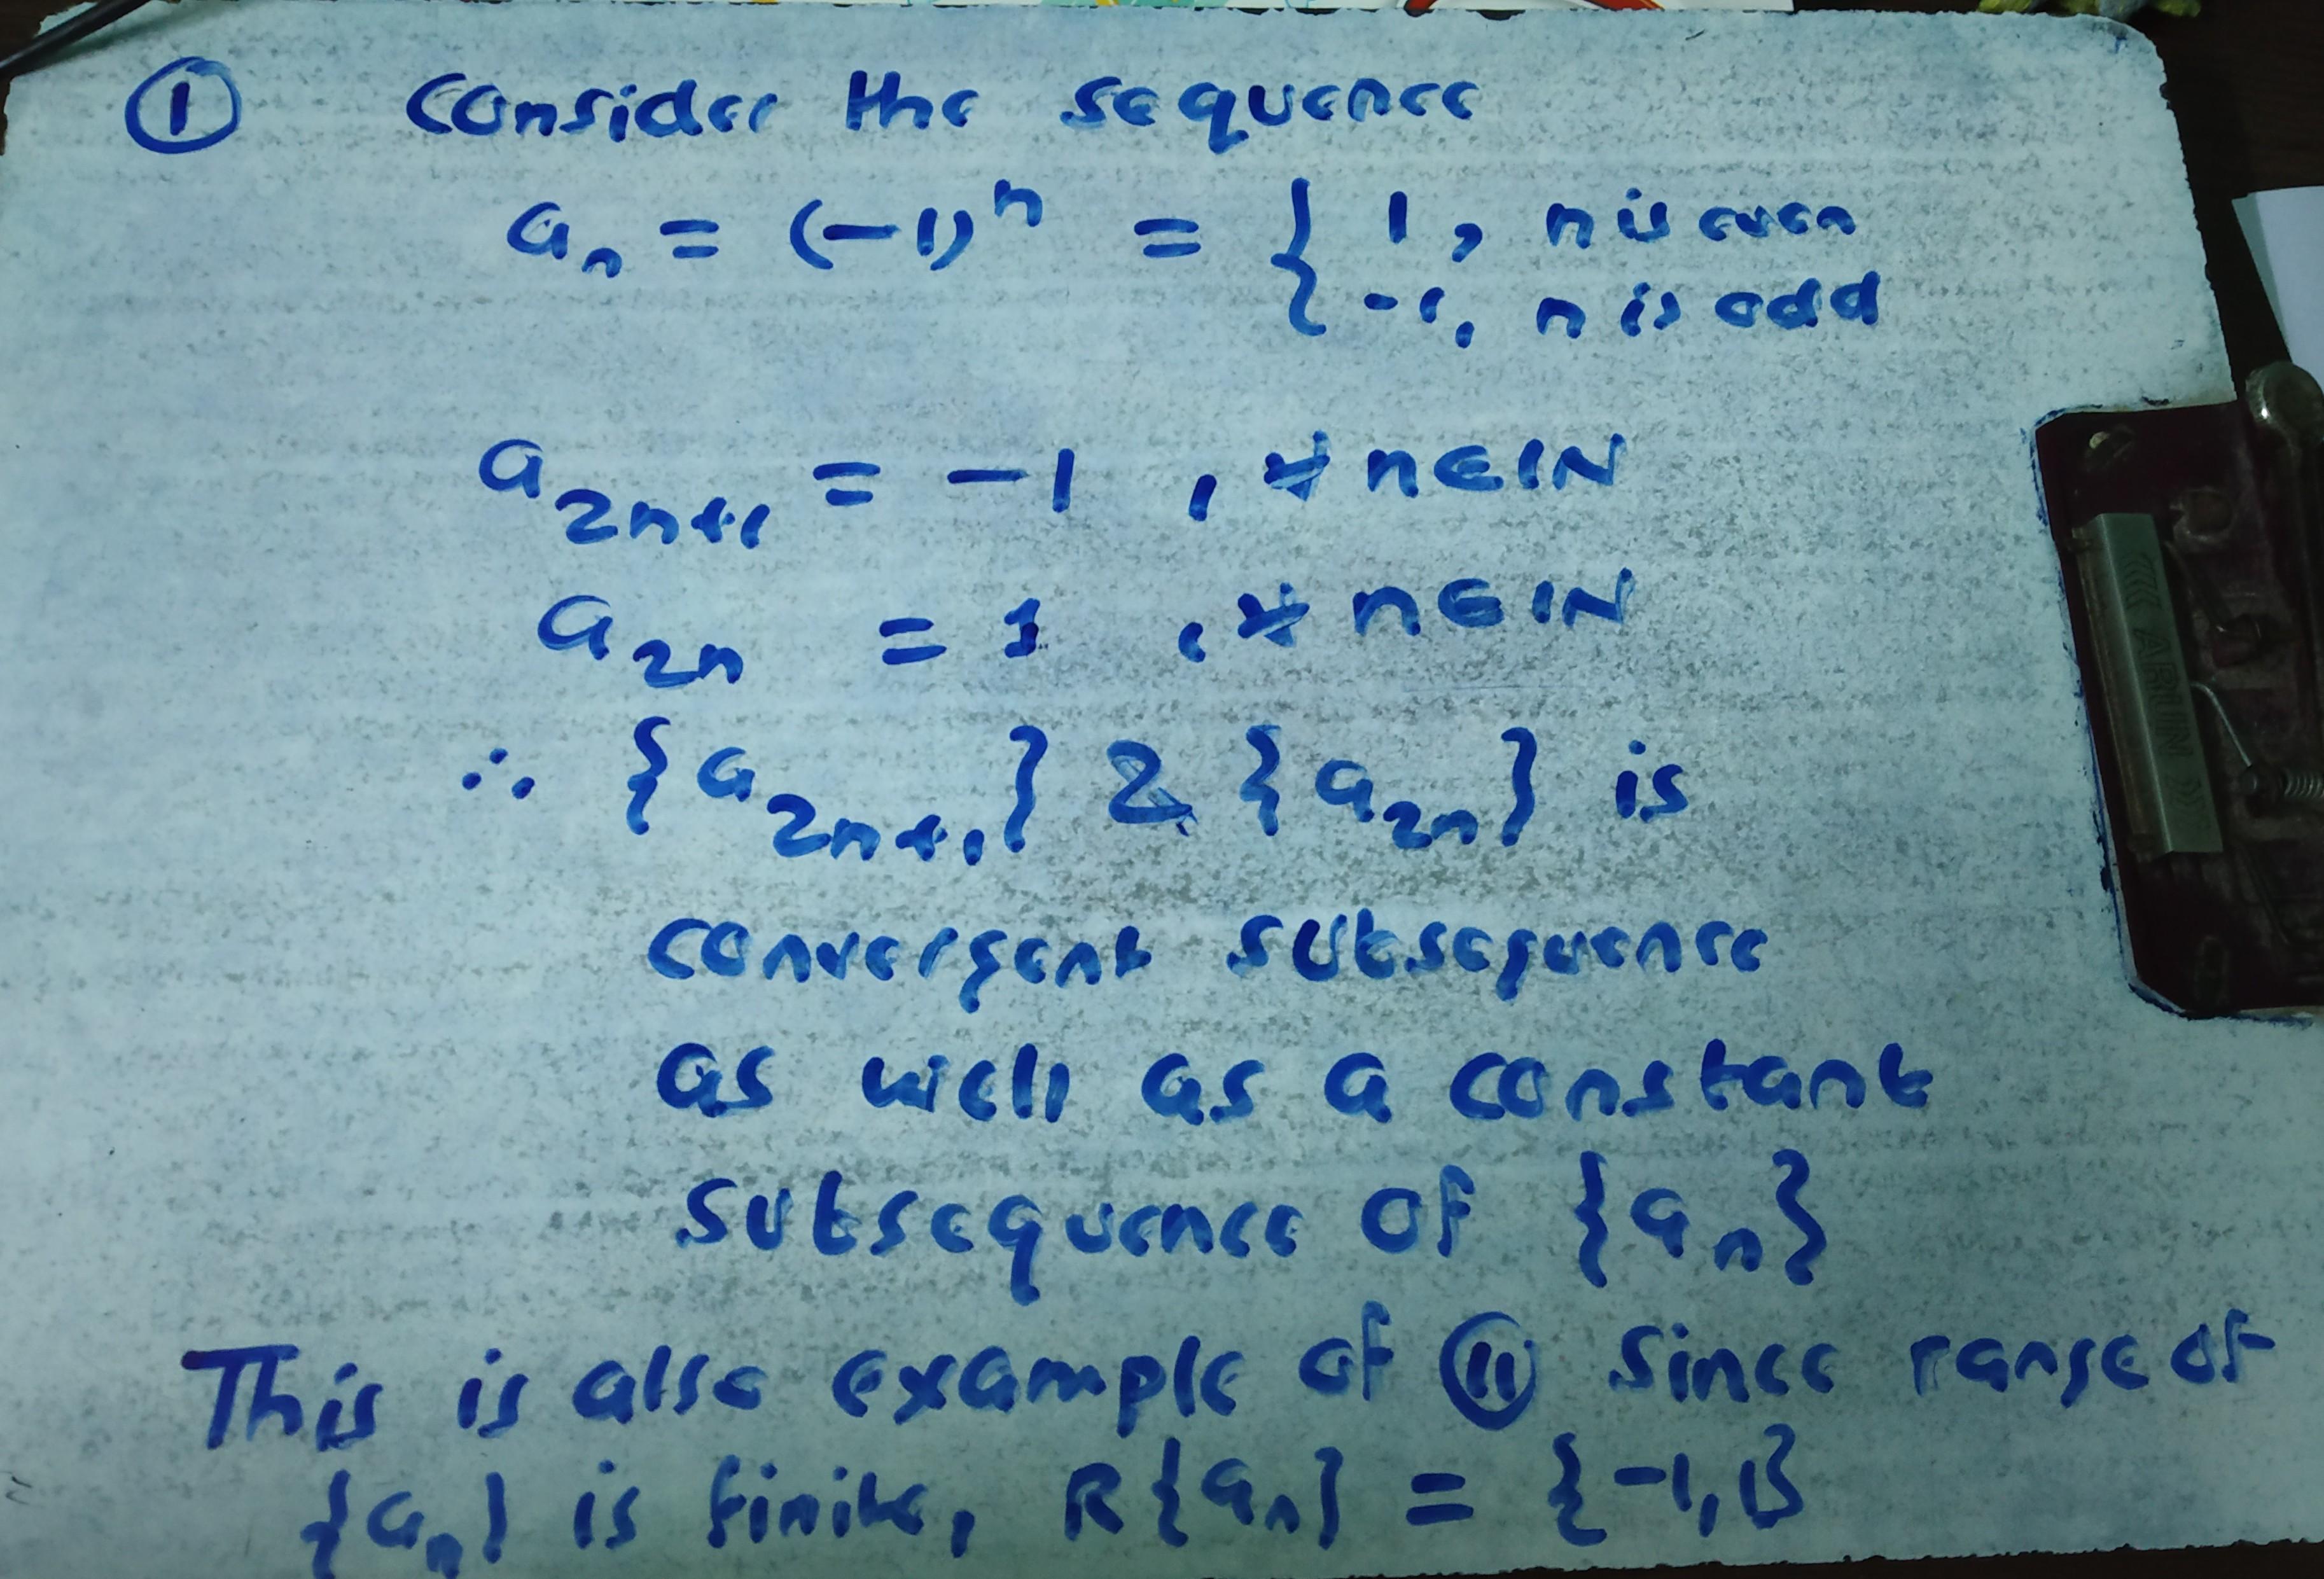 ① Consider the sequence
aₙ = (-1)ⁿ = { 1, n is even
-1, n is odd
a₂ₙ₊₁ = -1 , ∀ n∈ℕ
a₂ₙ = 1 , ∀ n∈ℕ
∴ {a₂ₙ₊₁} & {a₂ₙ} is
convergent subsequence
as well as a constant
subsequence of {aₙ}
This is also example of ⑪ since range of
{aₙ} is finite, R{aₙ} = {-1,1}
ARUN